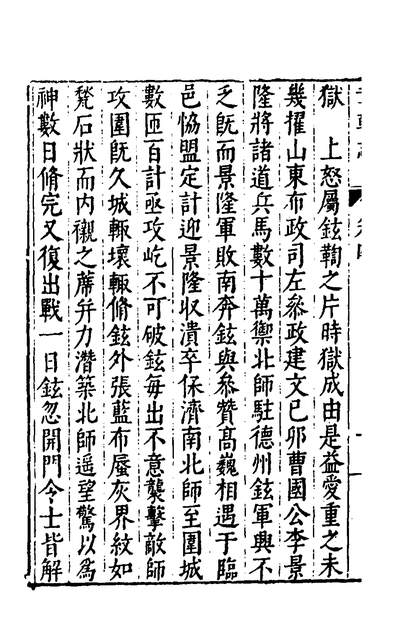 獄　上怒屬鉉鞫之片時獄成由是益愛重之未
幾擢山東布政司左叅政建文己卯曹國公李景
隆將諸道兵馬數十萬禦北師駐德州鉉軍興不
乏既而景隆軍敗南奔鉉與叅贊高巍相遇于臨
邑恊盟定計迎景隆収潰卒保濟南北師至圍城
數匝百計亟攻屹不可破鉉每出不意襲擊敵師
攻圍既久城輙壞輙脩鉉外張藍布蜃灰界紋如
甃石狀而内襯之蓆并力潛築北師遥望驚以為
神數日脩完又復出戰一日鉉忽開門令士皆解